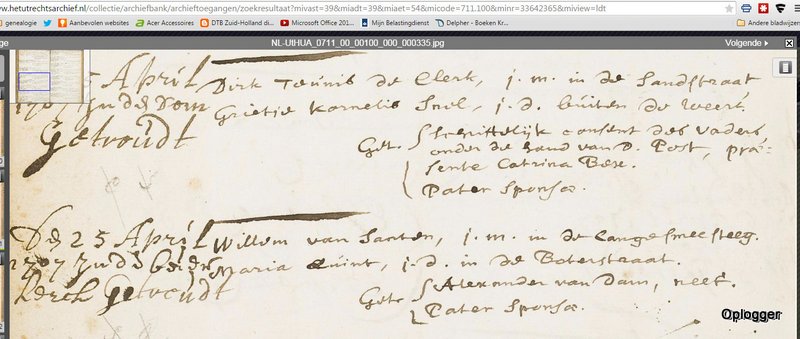 w.hetutrechtsarchief.nl/collectie/archiefbank/archieftoegangen/zoekresultaat?mivast=39&miadt=39&miaet=54&micode=711.100&minr=33642365&miview=ldt
ogle
Aanbevolen websites
Acer Accessoires
DTB Zuid-Holland di...
Microsoft Office 201...
Mijn Belastingdienst
Delpher - Boeken Kr...
Andere bladwijzers
NL-UtHUA_0711_00_00100_000_000335.jpg
Volgende
April Dirk Teunis de Clerk, j.m. in de Sandstraat
1707 In dē Dom Grietje Kornelis Snel, j.d. buiten de Weert.
Getroūdt
Get. Schriftelijk consent des Vaders
onder de hand van D. Post, præ-
sente Catrina Bose.
Pater Sponsæ.
Dē 25 April Willem van Santen, j.m. in de Langesmeesteeg.
1707 In de Maria Quint, j.d. in de Boterstraat.
Kerck Getroūdt
Get. Alexander van Dam, neef.
Pater Sponsæ.
Oplogger